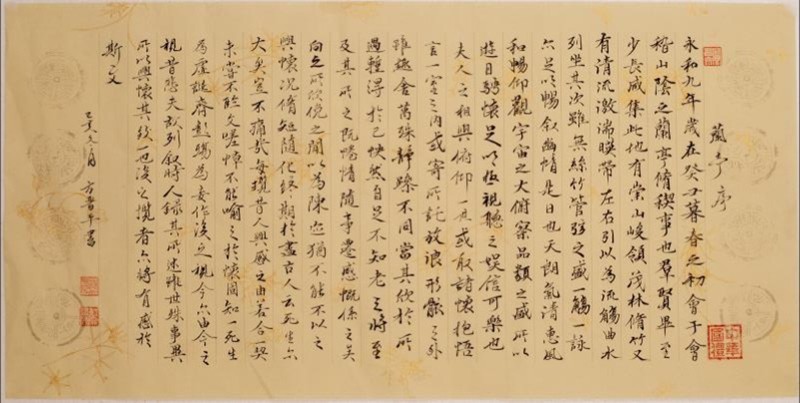 蘭亭序
永和九年歲在癸丑暮春之初會于會
稽山陰之蘭亭脩禊事也羣賢畢至
少長咸集此地有崇山峻領茂林脩竹又
有清流激湍暎帶左右引以為流觴曲水
列坐其次雖無絲竹管弦之盛一觴一詠
亦足以暢叙幽情是日也天朗氣清惠風
和暢仰觀宇宙之大俯察品類之盛所以
遊目騁懷足以極視聽之娛信可樂也
夫人之相與俯仰一世或取諸懷抱悟
言一室之內或寄所託放浪形骸之外
雖趣舍萬殊靜躁不同當其欣於所
遇輕得於己快然自足不知老之將至
及其所之既惓情隨事遷感慨係之矣
向之所欣俛之間以為陳迹猶不能不以之
興懷況脩短隨化終期於盡古人云死生亦
大矣豈不痛哉每攬昔人興感之由若合一契
未嘗不臨文嗟悼不能喻之於懷固知一死生
為虛誕齊彭殤為妄作後之視今亦由今之
視昔悲夫故列叙時人錄其所述雖世殊事異
所以興懷其致一也後之攬者亦將有感於
斯文